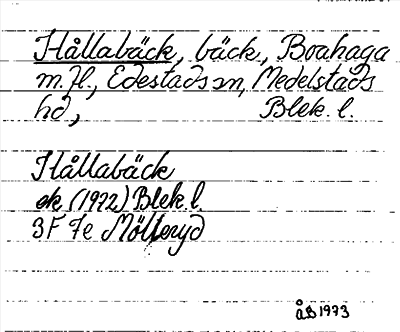 Hållabäck, bäck, Boahaga
m.fl., Edestads sn, Medelstads
hd, Blek. l.
Hållabäck
ek (1922) Blek. l.
3F 7e Mölleryd
ÅB 1973